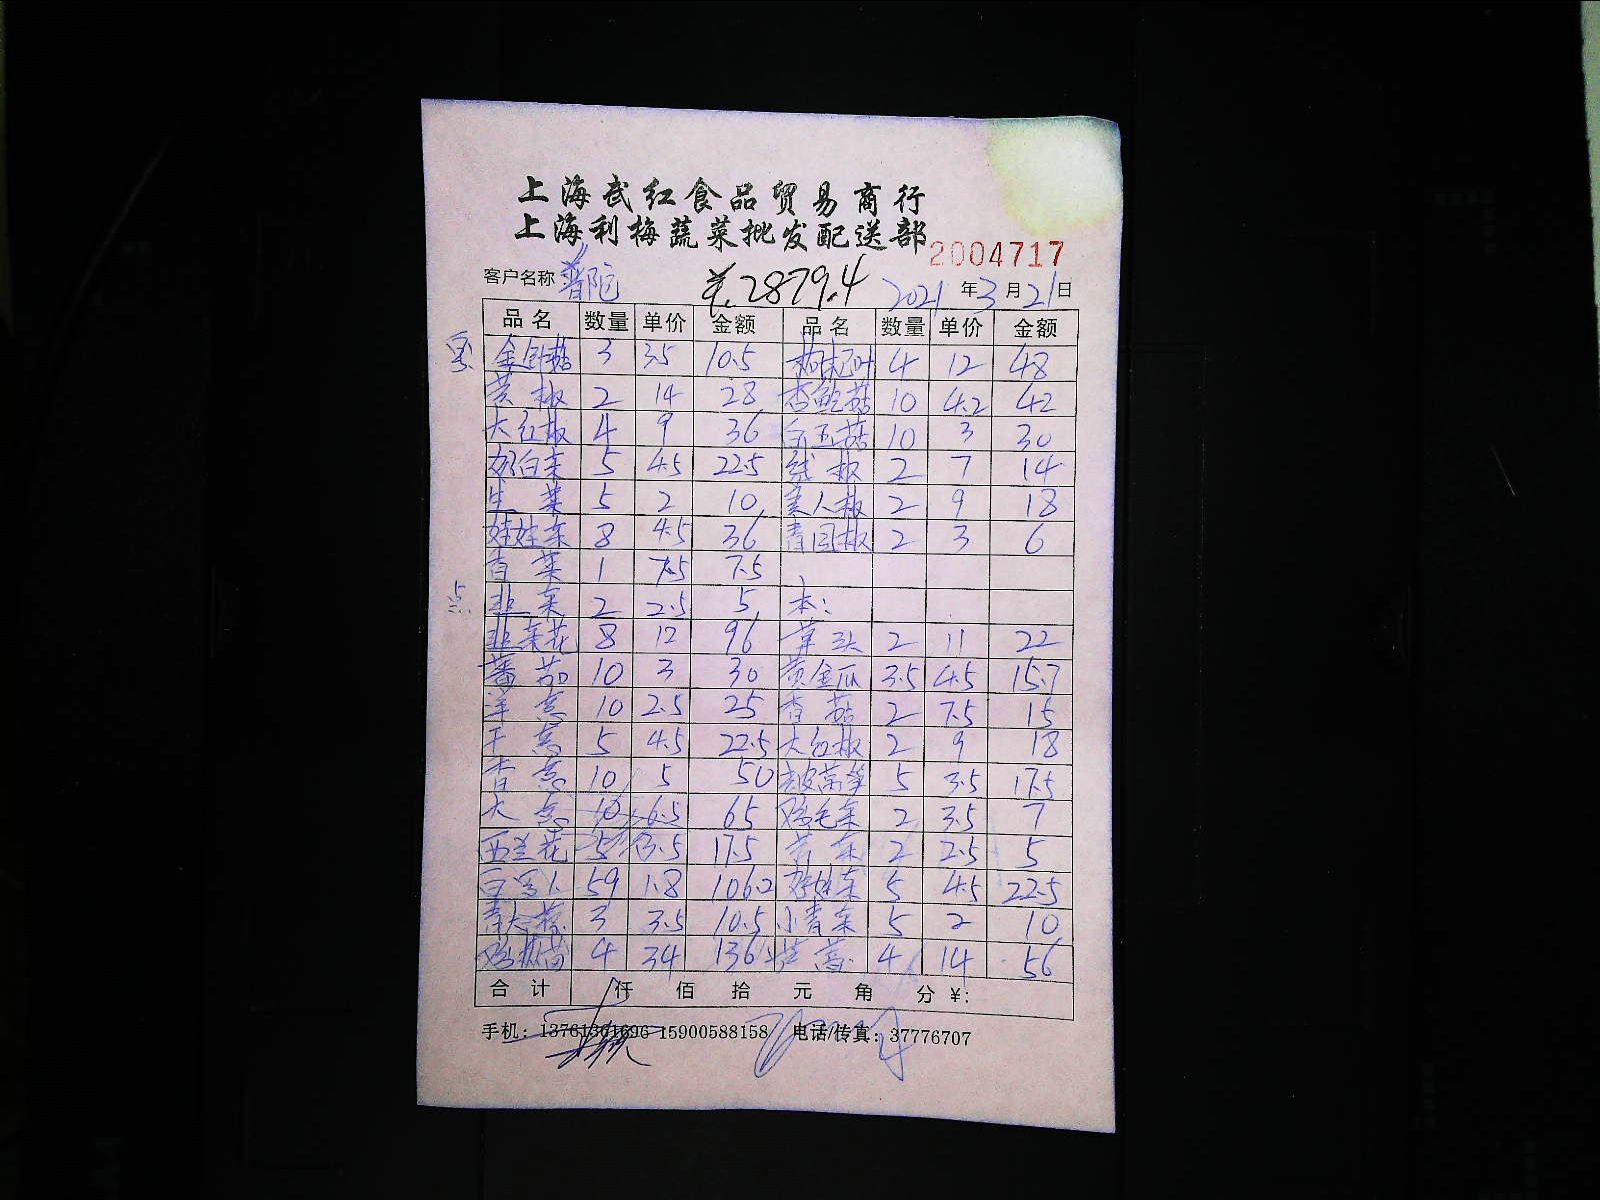 上海武红食品贸易商行
上海利梅蔬菜批发配送部
2004717
客户名称 普陀 ¥.2879.4 2021年3月21日
品名 数量 单价 金额 品名 数量 单价 金额
3 3.5 10.5 枸杞叶 4 12 48
黄椒 2 14 28 杏鲍菇 10 4.2 42
大红椒 4 9 36 白玉菇 10 3 30
奶白菜 5 4.5 22.5 线椒 2 7 14
生菜 5 2 10 美人椒 2 9 18
娃娃菜 8 4.5 36 青园椒 2 3 6
香菜 1 7.5 7.5
韭菜 2 2.5 5 本:
韭菜花 8 12 96 草头 2 11 22
蕃茄 10 3 30 黄金瓜 3.5 4.5 15.7
洋葱 10 2.5 25 香菇 2 7.5 15
干葱 5 4.5 22.5 大红椒 2 9 18
香葱 10 5 50 去皮莴笋 5 3.5 17.5
大葱 10 6.5 65 鸡毛菜 2 3.5 7
西兰花 5 3.5 17.5 2 2.5 5
59 1.8 106.2 5 4.5 22.5
3 3.5 10.5 小青菜 5 2 10
4 34 136 4 14 56
合计 仟 佰 拾 元 角 分 ¥:
手机: 13761361696 15900588158 电话/传真: 37776707